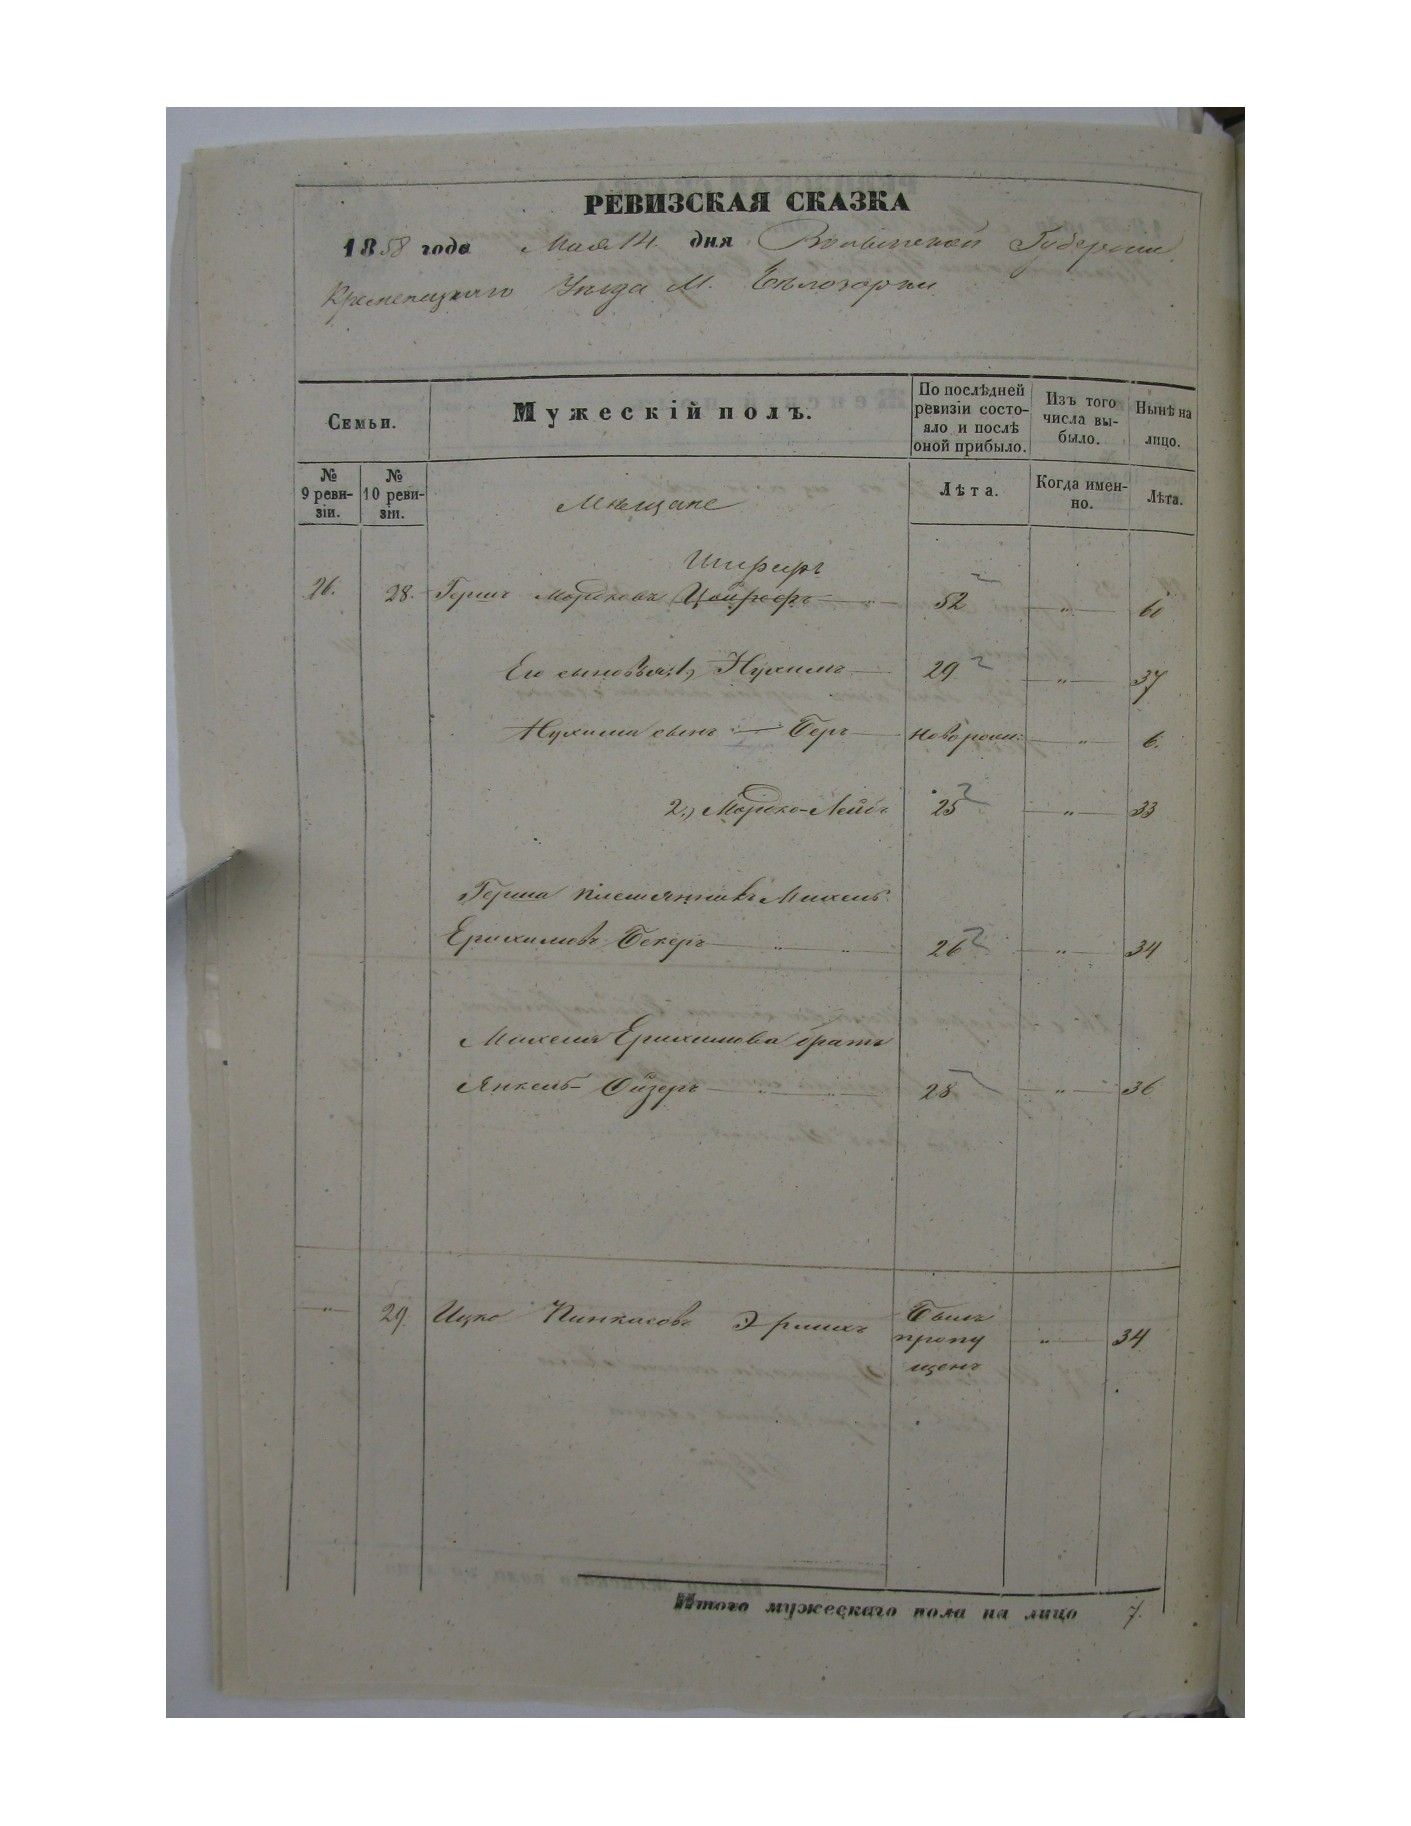 РЕВИЗСКАЯ СКАЗКА
1858 года Мая 14 дня Волынской Губернии
Кременецкаго Уезда М. Бѣлозорки
Семьи.
Мужескій полъ.
По послѣдней ревизіи состо-яло и послѣ оной прибыло.
Изъ того числа вы-было.
Нынѣ на лицо.
№ 9 реви-зіи.
№ 10 реви-зіи.
Мѣщане
Лѣта.
Когда имен-но.
Лѣта.
Шпиръ
26. 28. Гершъ Мордковъ 52 " 60
Его сыновья: 1, Нухимъ 29 " 37
Нухима сынъ — Беръ новорож: " 6.
2,, Мордко-Лейбъ 25 " 33
Герша племянникъ Михель
Ерихимовъ Бекеръ " " 26 " 34
Михеля Ерихимова братъ
Янкель-Ойзеръ " " 28 " 36
" 29. Ицко Пинкасовъ Эрлихъ Былъ пропу щенъ " 34
Итого мужескаго пола на лицо 7.